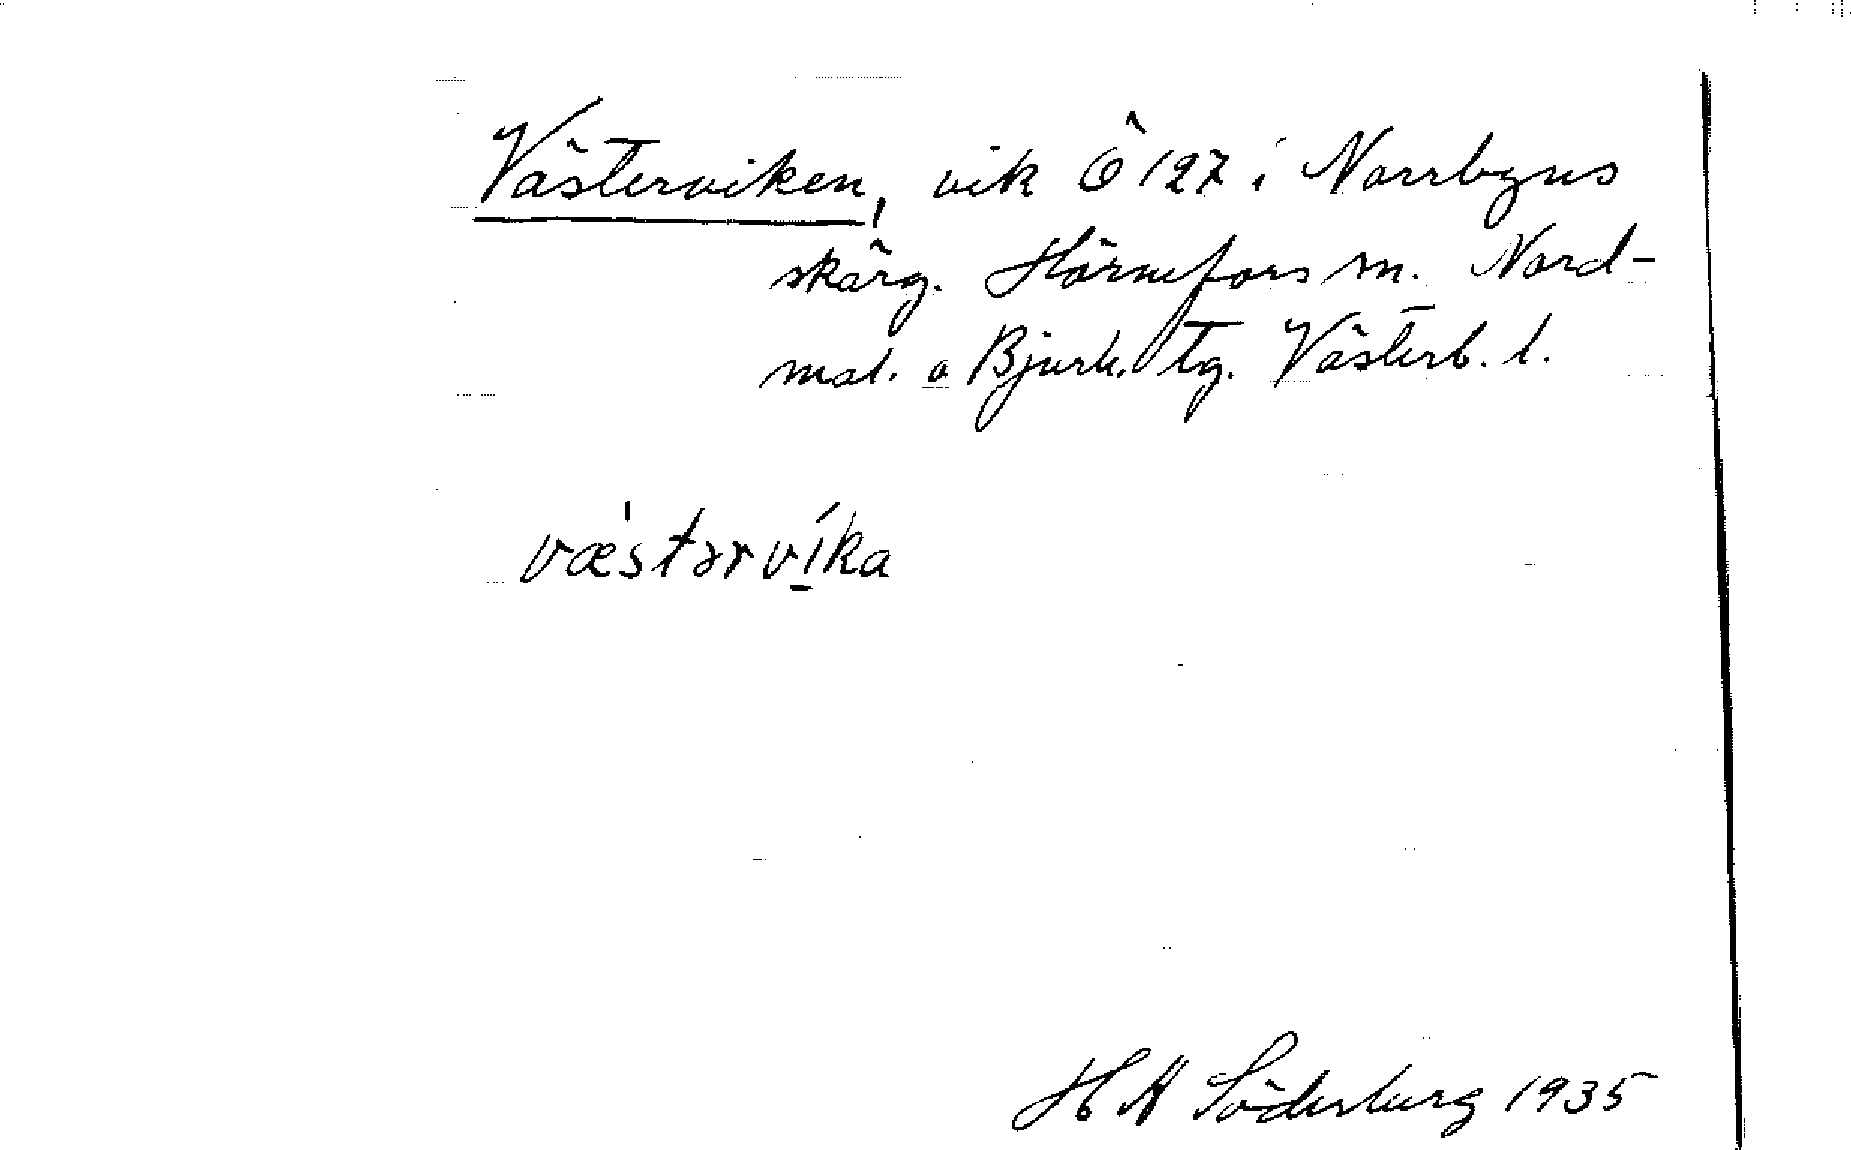 Västerviken, vik Ö 127 i Norrbyns
skärg. Hörnefors sn. Nord-
mal. o Bjurh. tg. Västerb. l.
væ̍stərvíka
H A Söderberg 1935